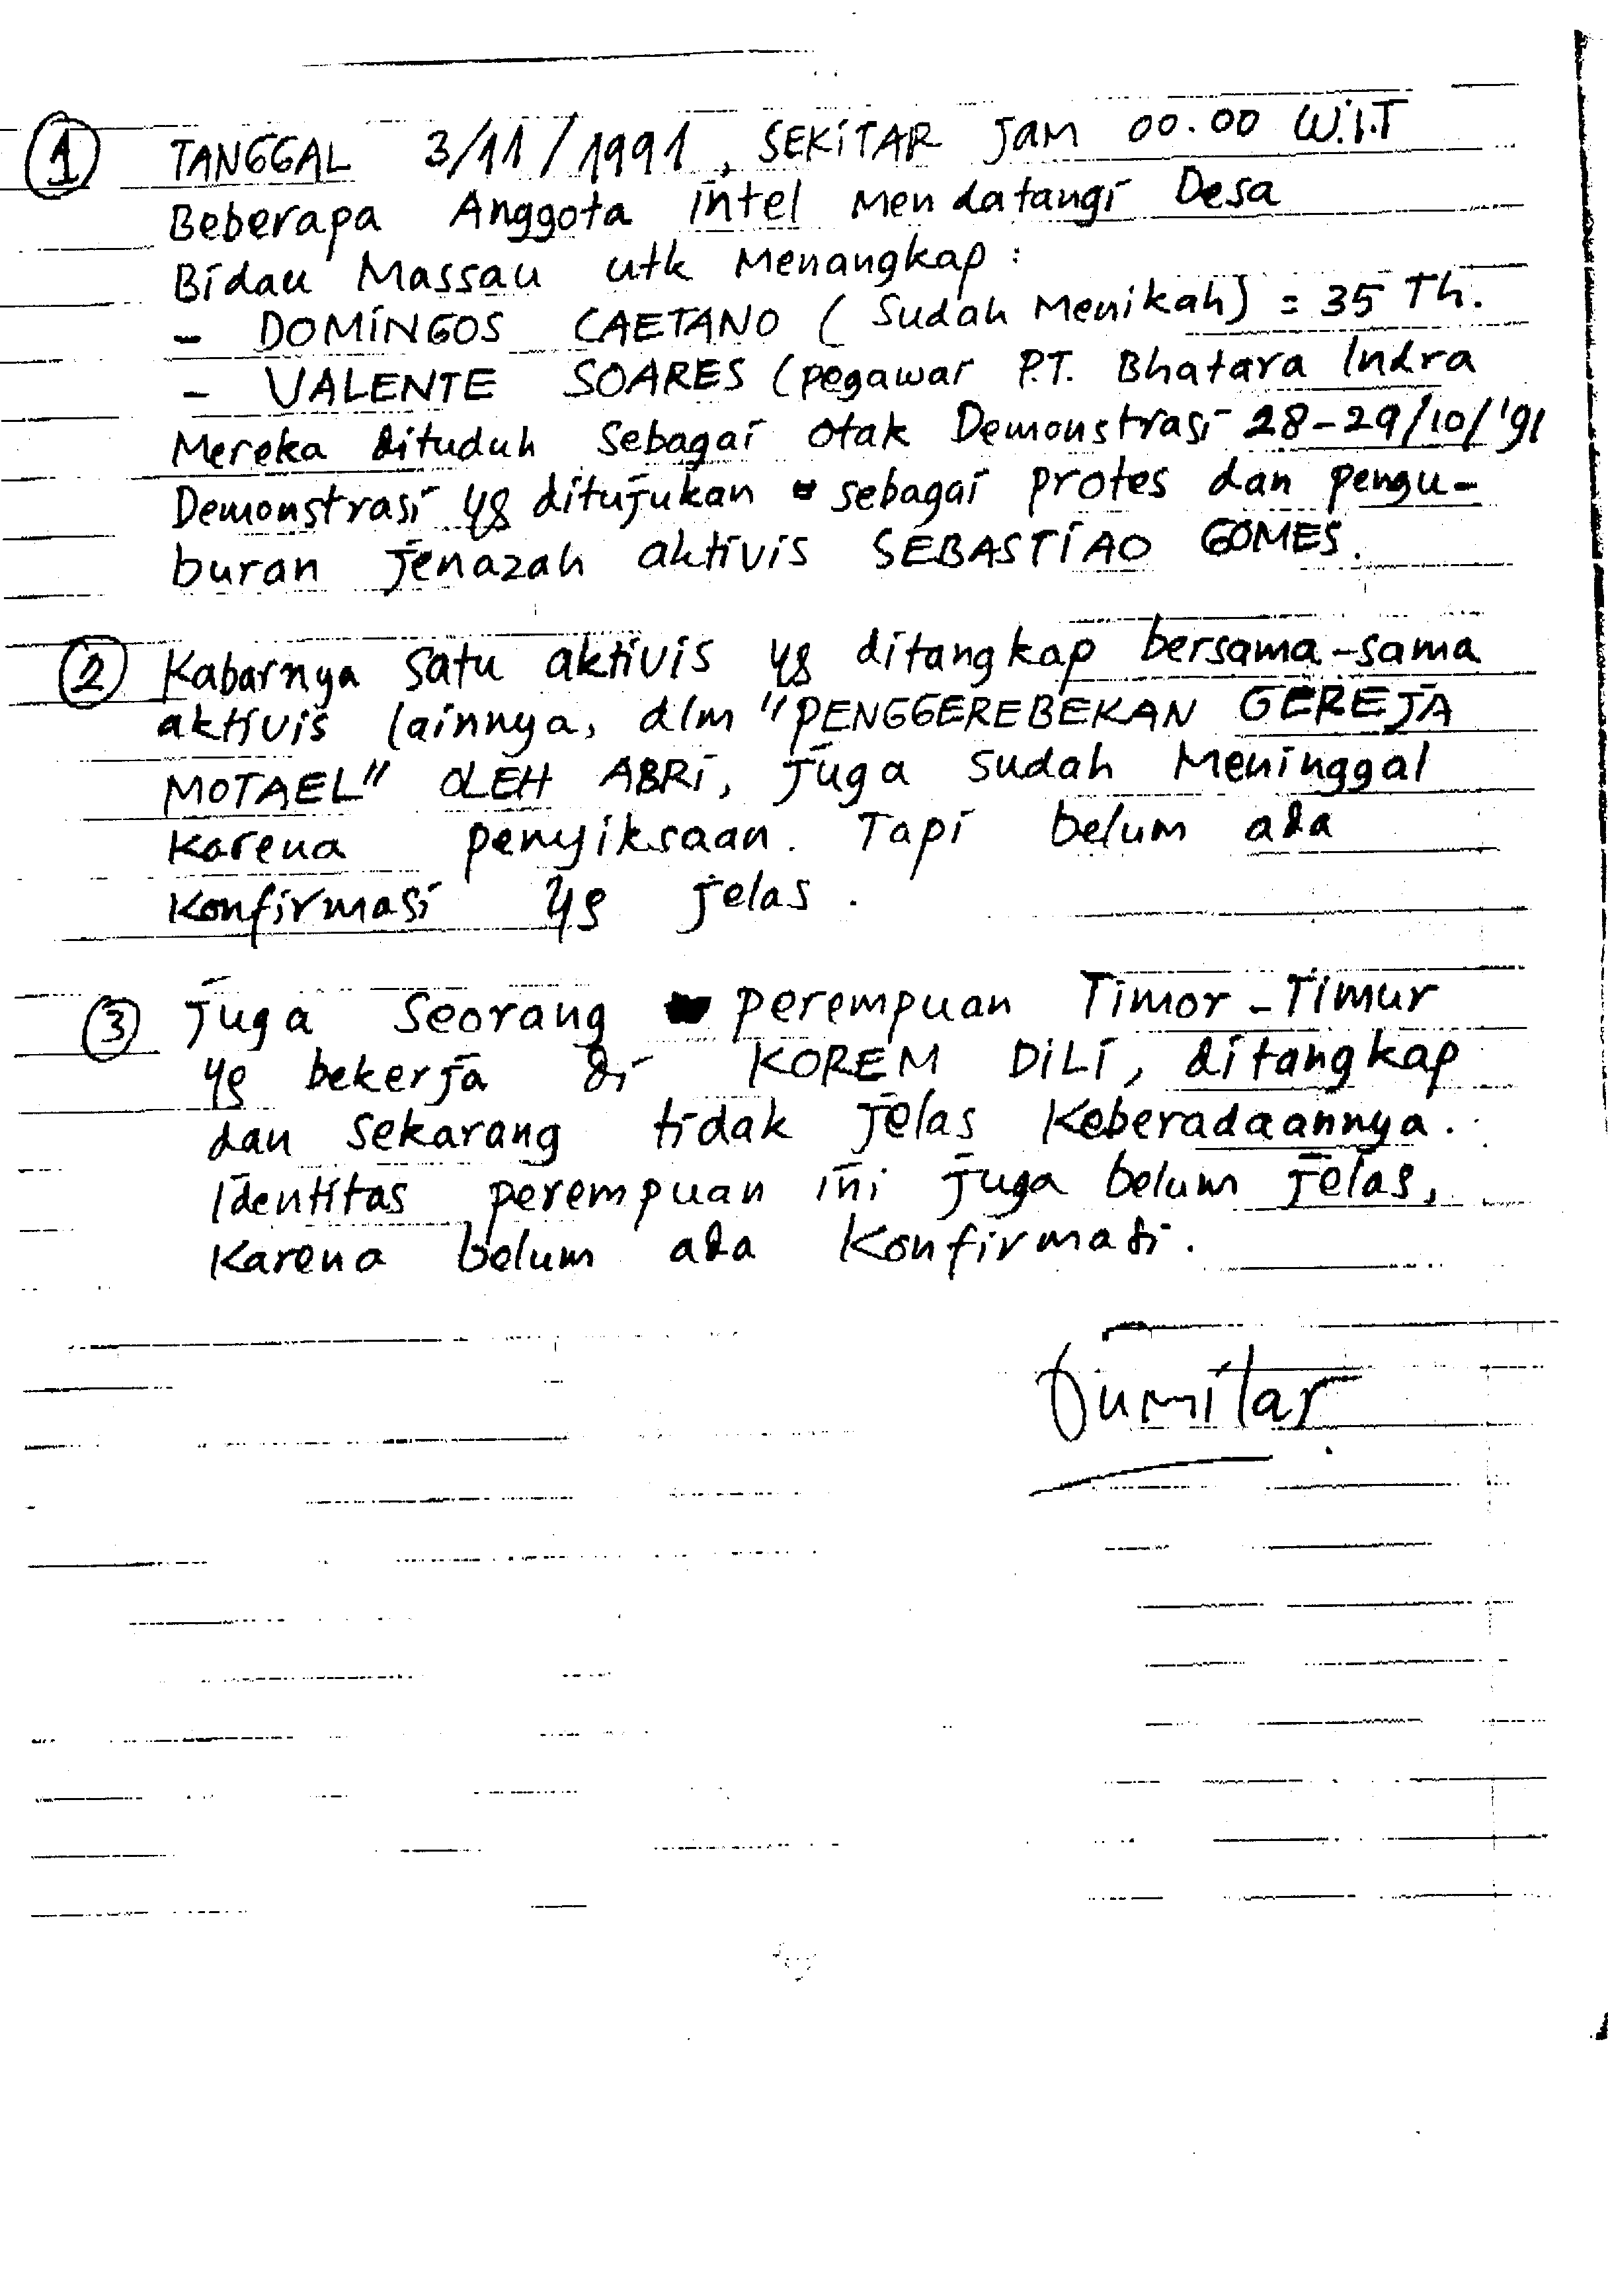 ① TANGGAL 3/11/1991, SEKITAR JAM 00.00 W.I.T
Beberapa Anggota intel Mendatangi Desa
Bidau Massau utk Menangkap :
- DOMINGOS CAETANO (Sudah Menikah) = 35 Th.
- VALENTE SOARES (pegawai P.T. Bhatara Indra
Mereka dituduh sebagai otak Demonstrasi 28-29/10/'91
Demonstrasi yg ditujukan sebagai protes dan pengu-
buran jenazah aktivis SEBASTIAO GOMES.
② Kabarnya satu aktivis yg ditangkap bersama-sama
aktivis lainnya, dlm "PENGGEREBEKAN GEREJA
MOTAEL" OLEH ABRI, juga sudah Meninggal
karena penyiksaan. Tapi belum ada
konfirmasi yg jelas.
③ juga seorang perempuan Timor-Timur
yg bekerja di KOREM DILI, ditangkap
dan sekarang tidak jelas keberadaannya.
Identitas perempuan ini juga belum jelas,
karena belum ada konfirmasi.